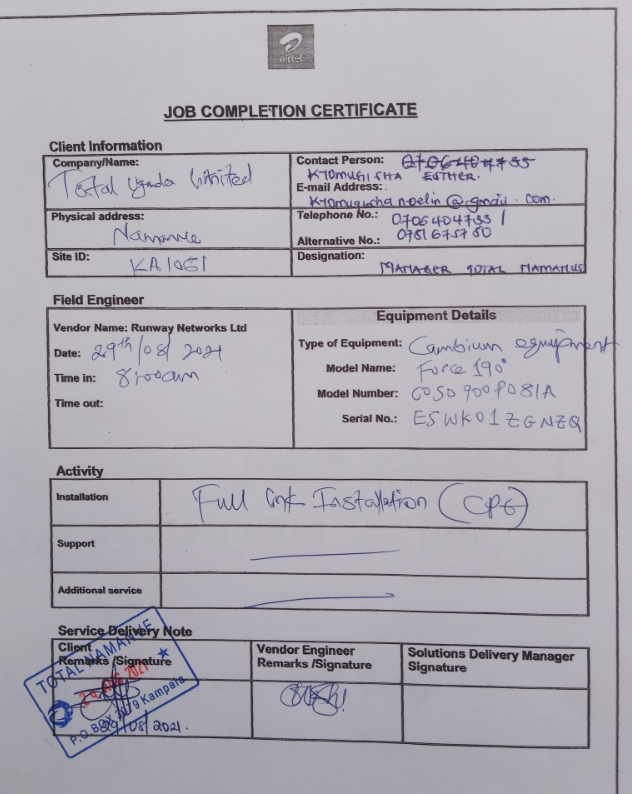 airtel
JOB COMPLETION CERTIFICATE
Client Information
Company/Name:
Total Uganda Limited
Contact Person:
KYOMUGISHA ESTHER.
E-mail Address:
Kyomugisha noelin @ gmail . com.
Physical address:
Namanve
Telephone No.: 0706404733 /
Alternative No.: 0781675780
Site ID: KA1061
Designation: MANAGER TOTAL NAMANVE
Field Engineer
Vendor Name: Runway Networks Ltd
Date: 29th/08/2021
Time in: 8:00am
Time out:
Equipment Details
Type of Equipment: Cambium equipment
Model Name: Force 190
Model Number: C050900P081A
Serial No.: E5WK01ZGNZQ
Activity
Installation
Full link Installation (CPE)
Support
Additional service
Service Delivery Note
Client
Remarks /Signature
Vendor Engineer
Remarks /Signature
Solutions Delivery Manager
Signature
TOTAL NAMANVE
AUG 2021
P.O.BOX 3079 Kampala
29/08/2021.